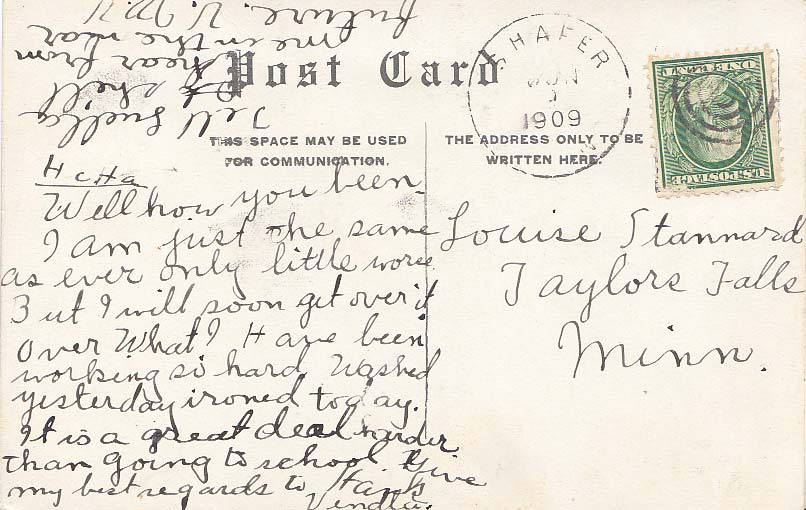 Post Card
SHAFER
JUN
1909
THIS SPACE MAY BE USED
FOR COMMUNICATION.
THE ADDRESS ONLY TO BE
WRITTEN HERE.
U.S. POSTAGE
ONE CENT
Well how you been
I am just the same
as ever only little worse
But I will soon get over it
over What? Have been
working so hard Washed
yesterday ironed today.
It is a great deal harder
than going to school. Give
my best regards to
Louise Stannard
Taylors Falls
Minn.
Tell Luella
I shall
hear from
me in the near
future.